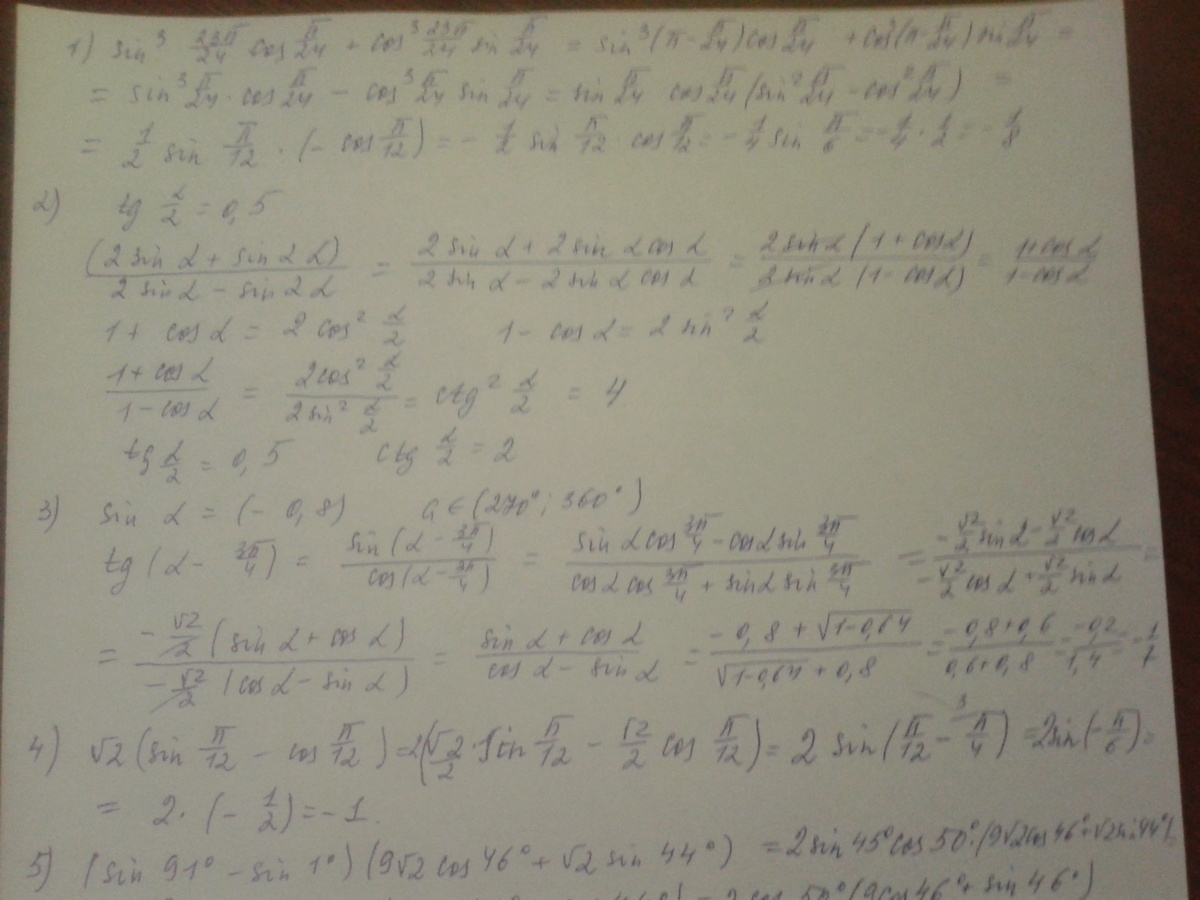 1) sin³ 23π/24 cos π/24 + cos³ 23π/24 sin π/24 = sin³(π - π/24) cos π/24 + cos³(π - π/24) sin π/24 =
= sin³ π/24 · cos π/24 - cos³ π/24 sin π/24 = sin π/24 cos π/24 (sin² π/24 - cos² π/24) =
= 1/2 sin π/12 · (- cos π/12) = - 1/2 sin π/12 · cos π/12 = - 1/4 sin π/6 = - 1/4 · 1/2 = - 1/8
2) tg α/2 = 0,5
(2 sin α + sin 2α)/(2 sin α - sin 2α) = (2 sin α + 2 sin α cos α)/(2 sin α - 2 sin α cos α) = 2 sin α (1 + cos α)/2 sin α (1 - cos α) = (1 + cos α)/(1 - cos α)
1 + cos α = 2 cos² α/2 1 - cos α = 2 sin² α/2
(1 + cos α)/(1 - cos α) = (2 cos² α/2)/(2 sin² α/2) = ctg² α/2 = 4
tg α/2 = 0,5 ctg α/2 = 2
3) sin α = (- 0,8) α ∈ (270°; 360°)
tg (α - 3π/4) = sin(α - 3π/4)/cos(α - 3π/4) = (sin α cos 3π/4 - cos α sin 3π/4)/(cos α cos 3π/4 + sin α sin 3π/4) = (-√2/2 sin α - √2/2 cos α)/(-√2/2 cos α + √2/2 sin α) =
= -√2/2 (sin α + cos α)/-√2/2 (cos α - sin α) = (sin α + cos α)/(cos α - sin α) = (-0,8 + √1-0,64)/(√1-0,64 + 0,8) = (-0,8 + 0,6)/(0,6 + 0,8) = -0,2/1,4 = -1/7
4) √2 (sin π/12 - cos π/12) = 2(√2/2 · sin π/12 - √2/2 cos π/12) = 2 sin(π/12 - π/4) = 2 sin(-π/6) =
= 2 · (- 1/2) = -1.
5) (sin 91° - sin 1°)(9√2 cos 46° + √2 sin 44°) = 2 sin 45° cos 50° · (9√2 cos 46° + √2 sin 44°) =
= 2 cos 50° (9 cos 46° + sin 46°)